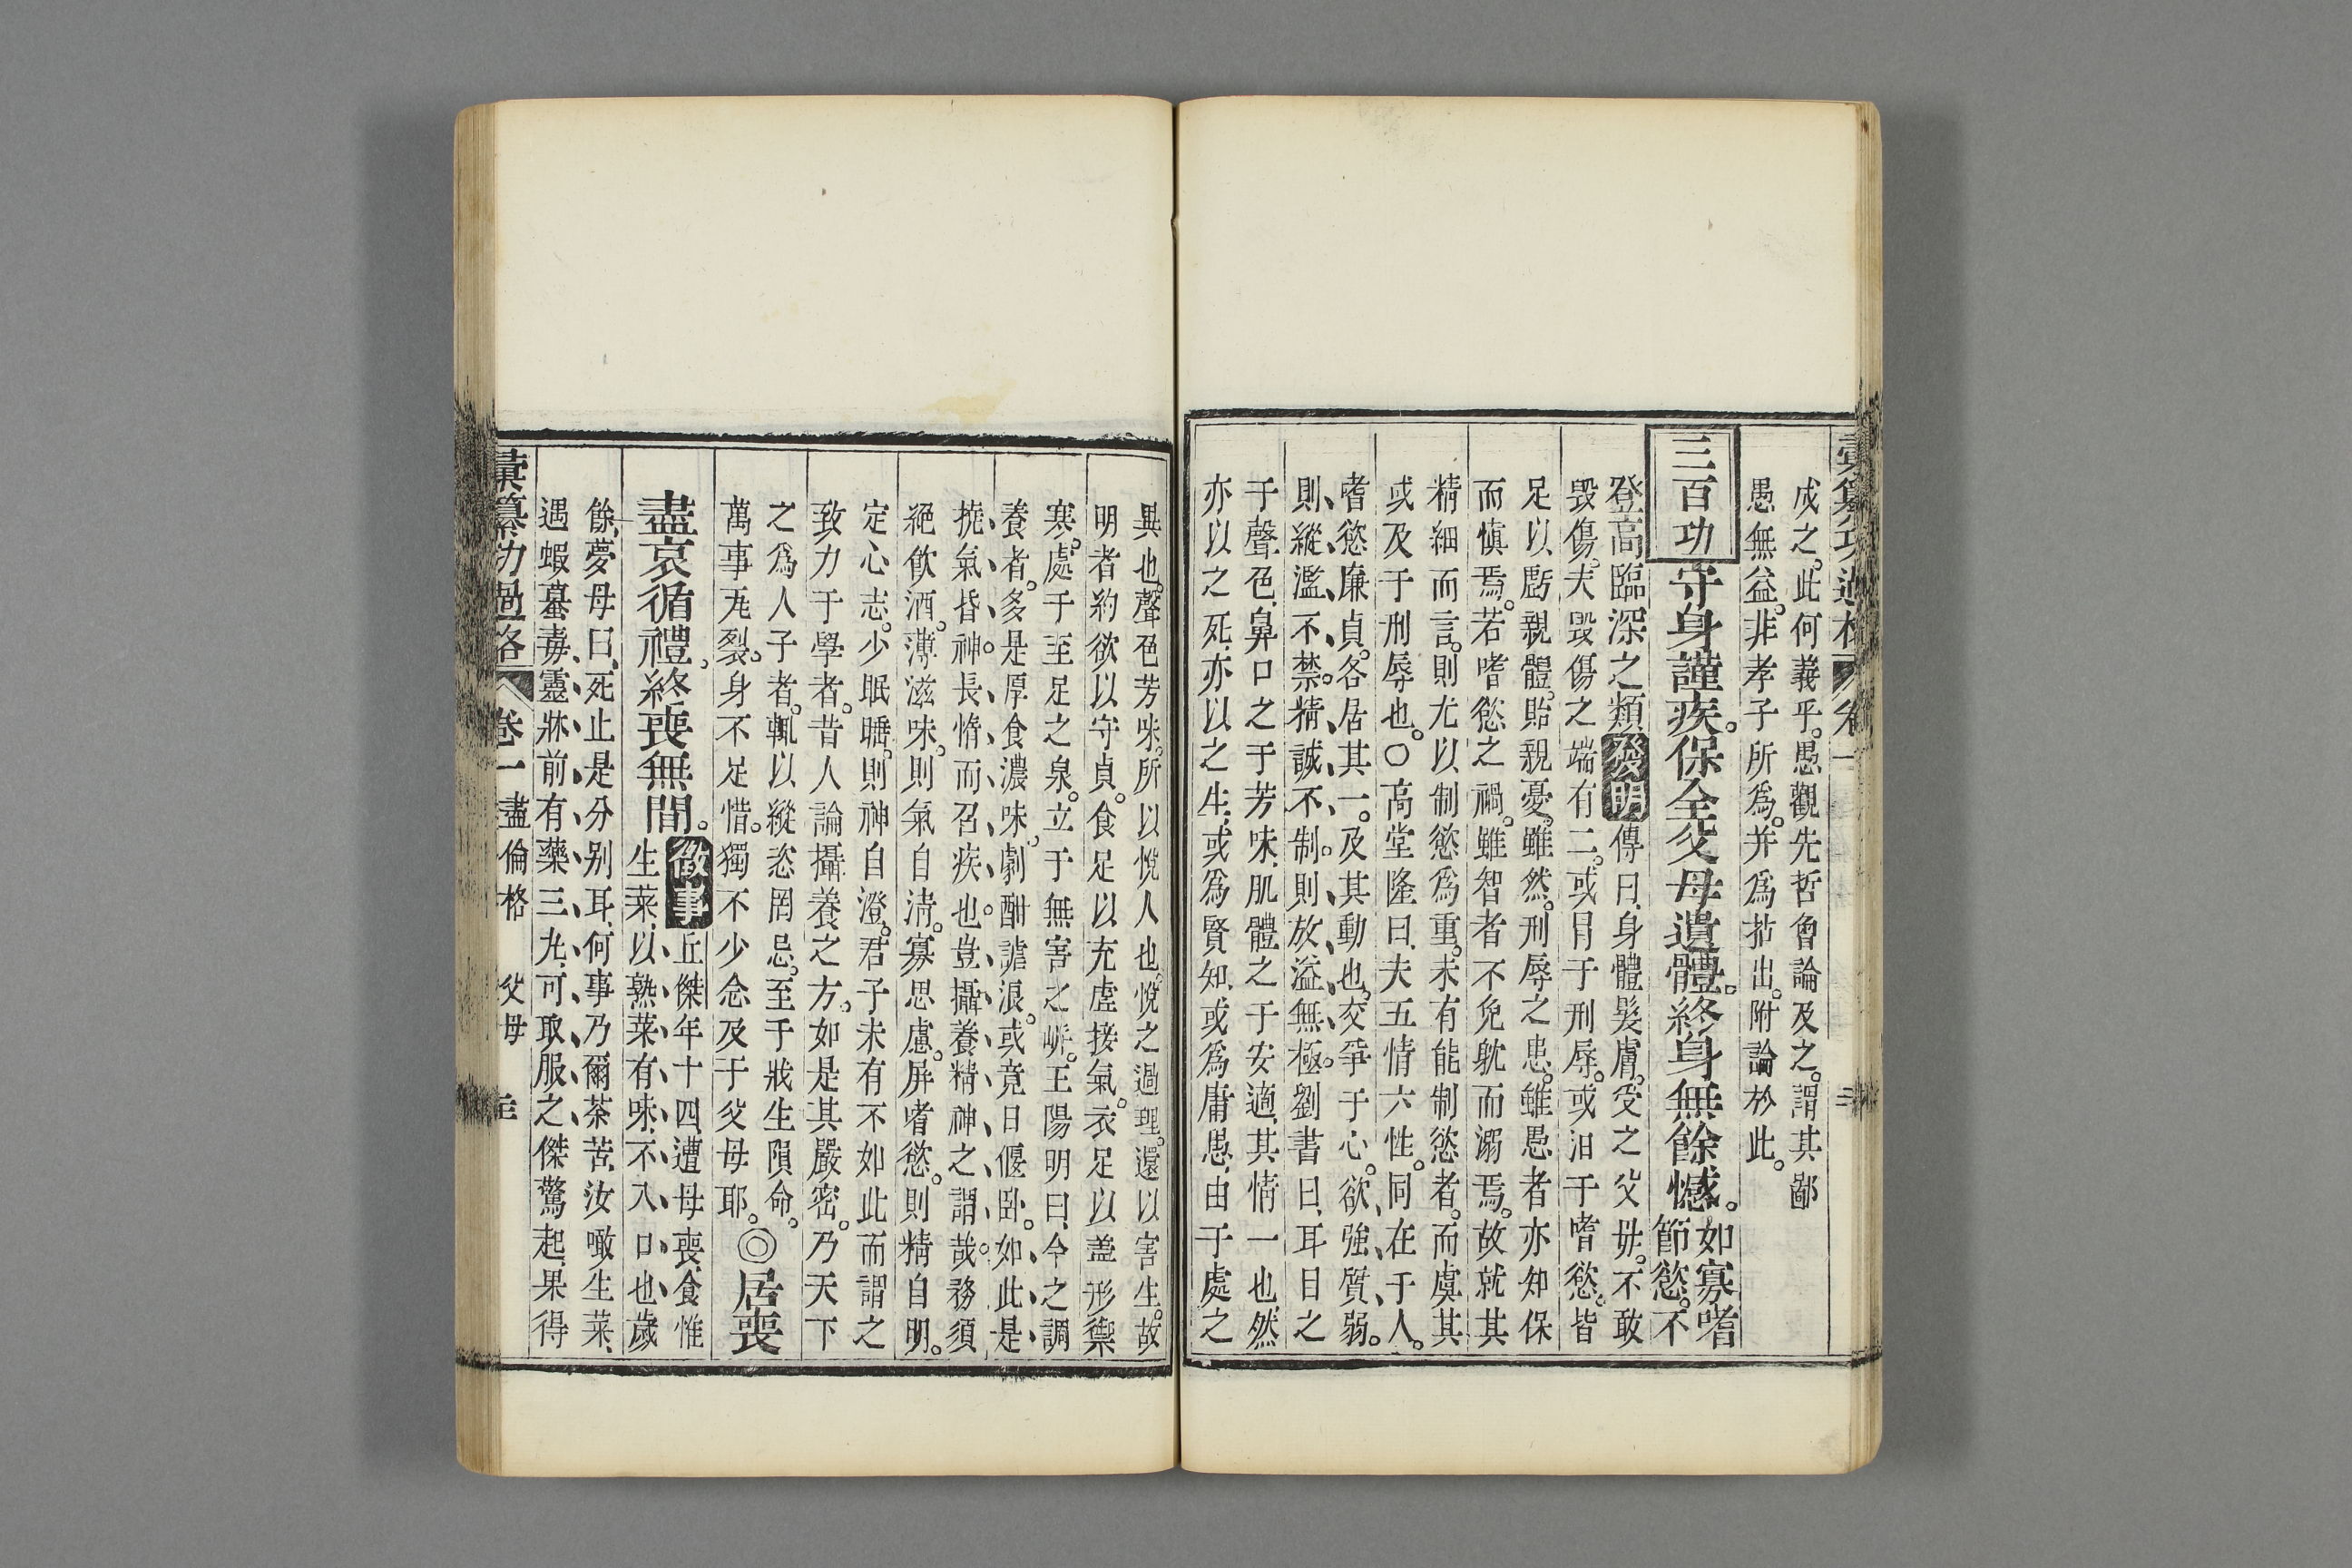 彙纂功過格 卷一
成之。此何義乎。愚觀先哲會論及之。謂其鄙
愚無益。非孝子所爲。并爲拈出。附論於此。
三百功 守身謹疾。保全父母遺體。終身無餘憾。如寡嗜
節慾。不
登高臨深之類 發明 傳曰、身體髮膚。受之父母。不敢
毀傷。夫毀傷之端有二。或冒于刑辱。或汨于嗜慾。皆
足以虧親體。貽親憂。雖然。刑辱之患。雖愚者亦知保
而慎焉。若嗜慾之禍。雖智者不免躭而溺焉。故就其
精細而言。則尤以制慾爲重。未有能制慾者。而虞其
或及于刑辱也。○高堂隆曰、夫五情六性。同在于人。
嗜慾廉貞。各居其一。及其動也。交爭于心。欲強質弱。
則縱濫不禁。精誠不制。則放溢無極。劉書曰、耳目之
于聲色、鼻口之于芳味、肌體之于安適、其情一也、然
亦以之死、亦以之生、或爲賢知、或爲庸愚、由于處之
異也。聲色芳味。所以悅人也。悅之過理。還以害生。故
明者約欲以守貞。食足以充虛接氣。衣足以蓋形禦
寒。處于至足之泉。立于無害之岍。王陽明曰、今之調
養者。多是厚食濃味。劇酣謔浪。或竟日偃臥。如此是
撓氣昏神。長惰而召疾也。豈攝養精神之謂哉。務須
絕飲酒。薄滋味。則氣自清。寡思慮。屏嗜慾。則精自明。
定心志。少眠睡。則神自澄。君子未有不如此而謂之
致力于學者。昔人論攝養之方。如是其嚴密。乃天下
之爲人子者。輒以縱恣罔忌。至于戕生隕命。
萬事瓦裂。身不足惜。獨不少念及于父母耶。◎居喪
盡哀循禮。終喪無間。徵事 丘傑年十四、遭母喪、食惟
生菜、以熟菜有味、不入口也、歲
餘、夢母曰、死止是分別耳、何事乃爾荼苦、汝噉生菜、
遇蝦蟇毒、靈牀前、有藥三丸、可取服之、傑驚起、果得
彙纂功過格 卷一 盡倫格 父母 三